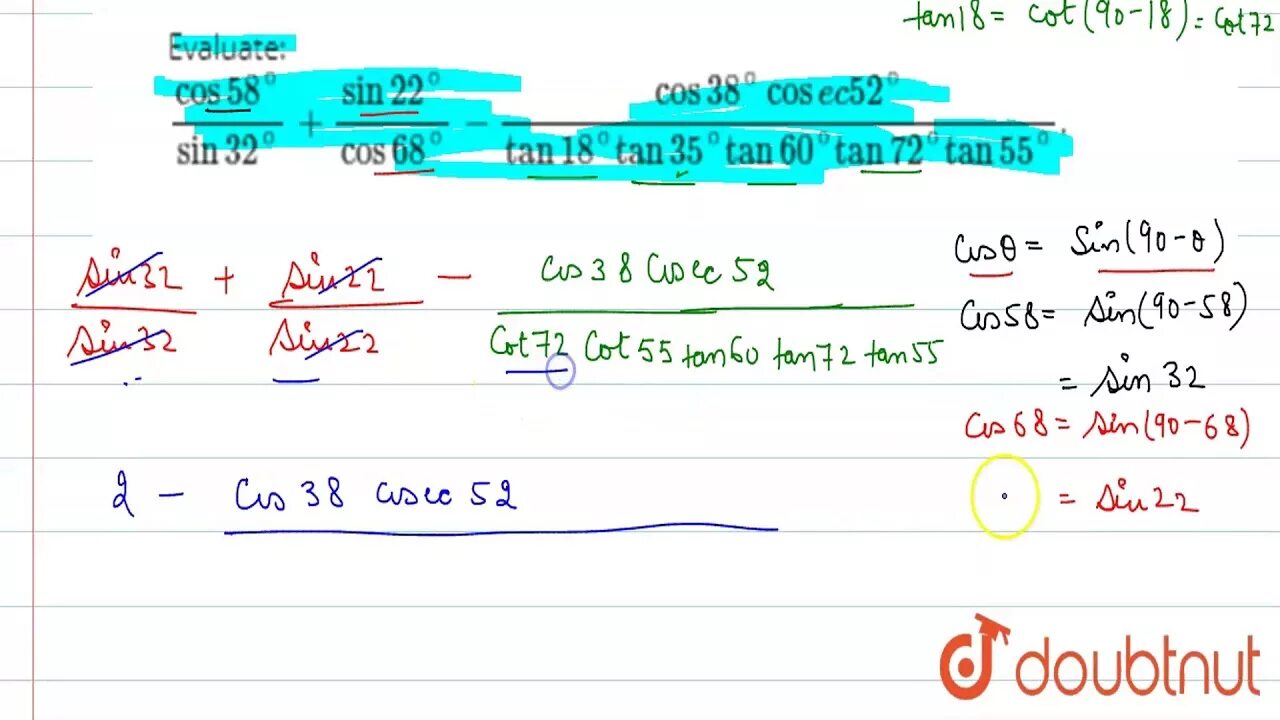 tan18 = cot(90-18) = Cot72
Evaluate:
cos 58° / sin 32° + sin 22° / cos 68° - cos 38° cosec52° / tan 18° tan 35° tan 60° tan 72° tan 55° .
sin32 / sin32 + sin22 / sin22 - cos38 cosec52 / Cot72 Cot55 tan60 tan72 tan55
cosθ = sin(90-θ)
cos58 = sin(90-58)
= sin 32
cos68 = sin(90-68)
= sin22
2 - cos 38 cosec 52
doubtnut